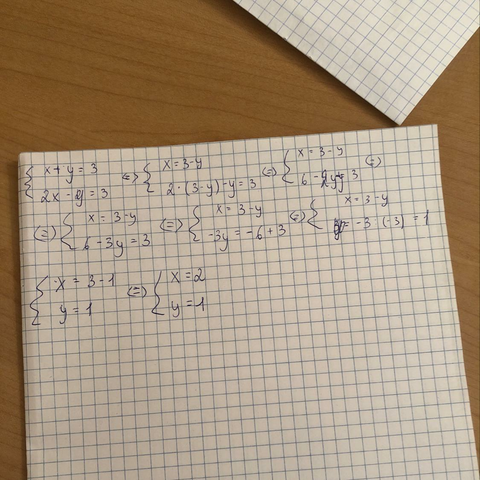 { x + y = 3 ; 2x - y = 3 ⇔ { x = 3 - y ; 2·(3-y) - y = 3 ⇔ { x = 3 - y ; 6 - 2y - y = 3 ⇔
⇔ { x = 3 - y ; 6 - 3y = 3 ⇔ { x = 3 - y ; -3y = -6 + 3 ⇔ { x = 3 - y ; y = -3 : (-3) = 1
{ x = 3 - 1 ; y = 1 ⇔ { x = 2 ; y = 1